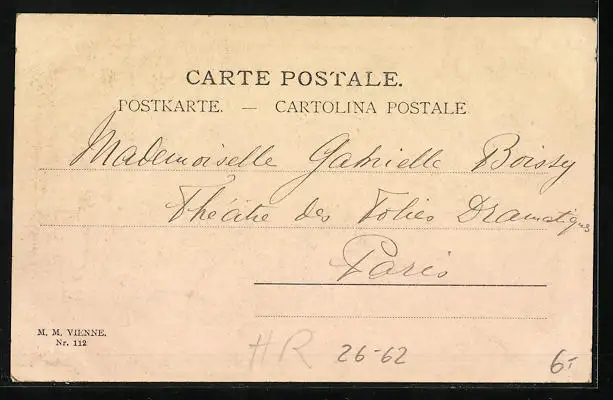 CARTE POSTALE.
POSTKARTE. — CARTOLINA POSTALE
Mademoiselle Gabrielle Boissy
Théâtre des Folies Dramatiques
Paris
M. M. VIENNE.
Nr. 112
HR 26-62 6,-